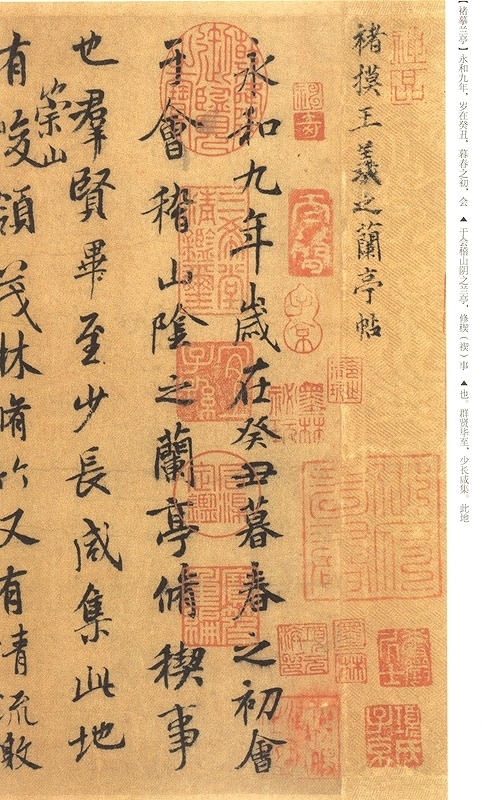 【褚摹兰亭】永和九年，岁在癸丑，暮春之初，会 ▲ 于会稽山阴之兰亭，修稧（禊）事 ▲ 也。群贤毕至，少长咸集。此地
神品
項氏子京
褚摸王羲之蘭亭帖
子京
墨林
墨林
永和九年歲在癸丑暮春之初會
三希堂精鑑璽
宜子孫
于會稽山陰之蘭亭脩稧事
也羣賢畢至少長咸集此地
崇山
有峻領茂林脩竹又有清流激